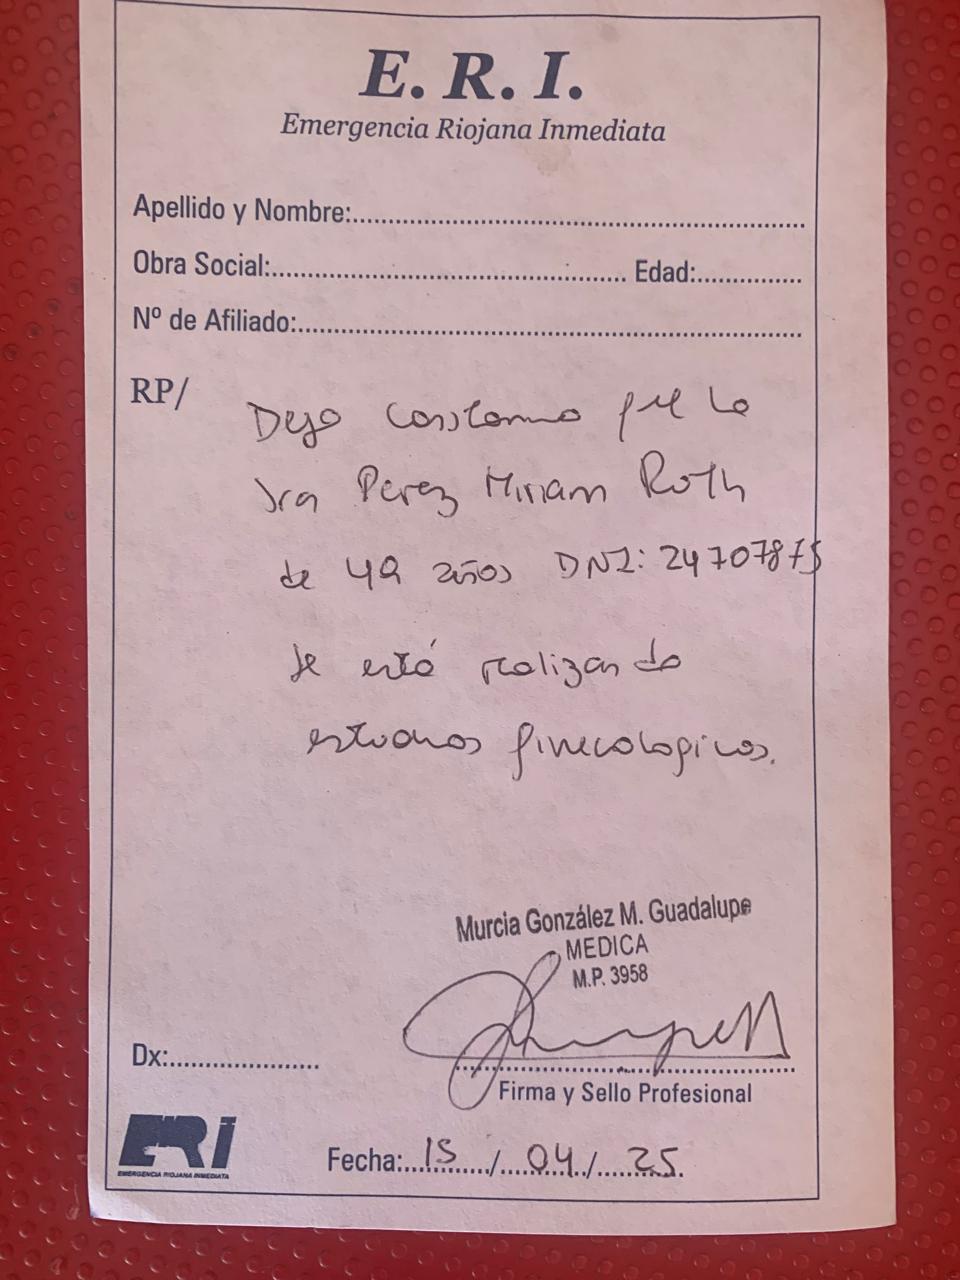 E. R. I.
Emergencia Riojana Inmediata
Apellido y Nombre:
Obra Social: Edad:
Nº de Afiliado:
RP/
Dejo constancia que la
Sra Perez Miriam Roth
de 49 años DNI: 24707875
se está realizando
estudios ginecologicos.
Murcia González M. Guadalupe
MEDICA
M.P. 3958
Dx:
Firma y Sello Profesional
ERI
EMERGENCIA RIOJANA INMEDIATA
Fecha: 15 / 04 / 25.